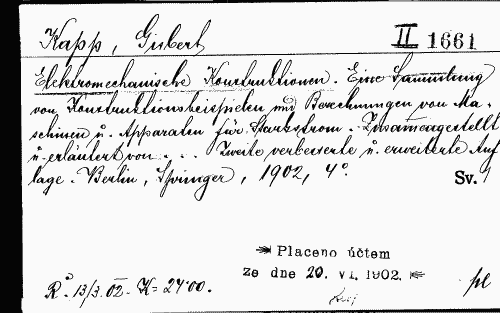 Kapp, Gisbert
II 1661
Elektromechanische Konstruktionen. Eine Sammlung
von Konstruktionsbeispielen und Berechnungen von Ma-
schinen u. Apparaten für Starkstrom. Zusammengestellt
u. erläutert von . . . Zweite verbesserte u. erweiterte Auf
lage. Berlin, Springer, 1902, 4°.
Sv. 1
Placeno účtem
ze dne 20. VI. 1902.
R. 13/3. 02 - K= 27·00.